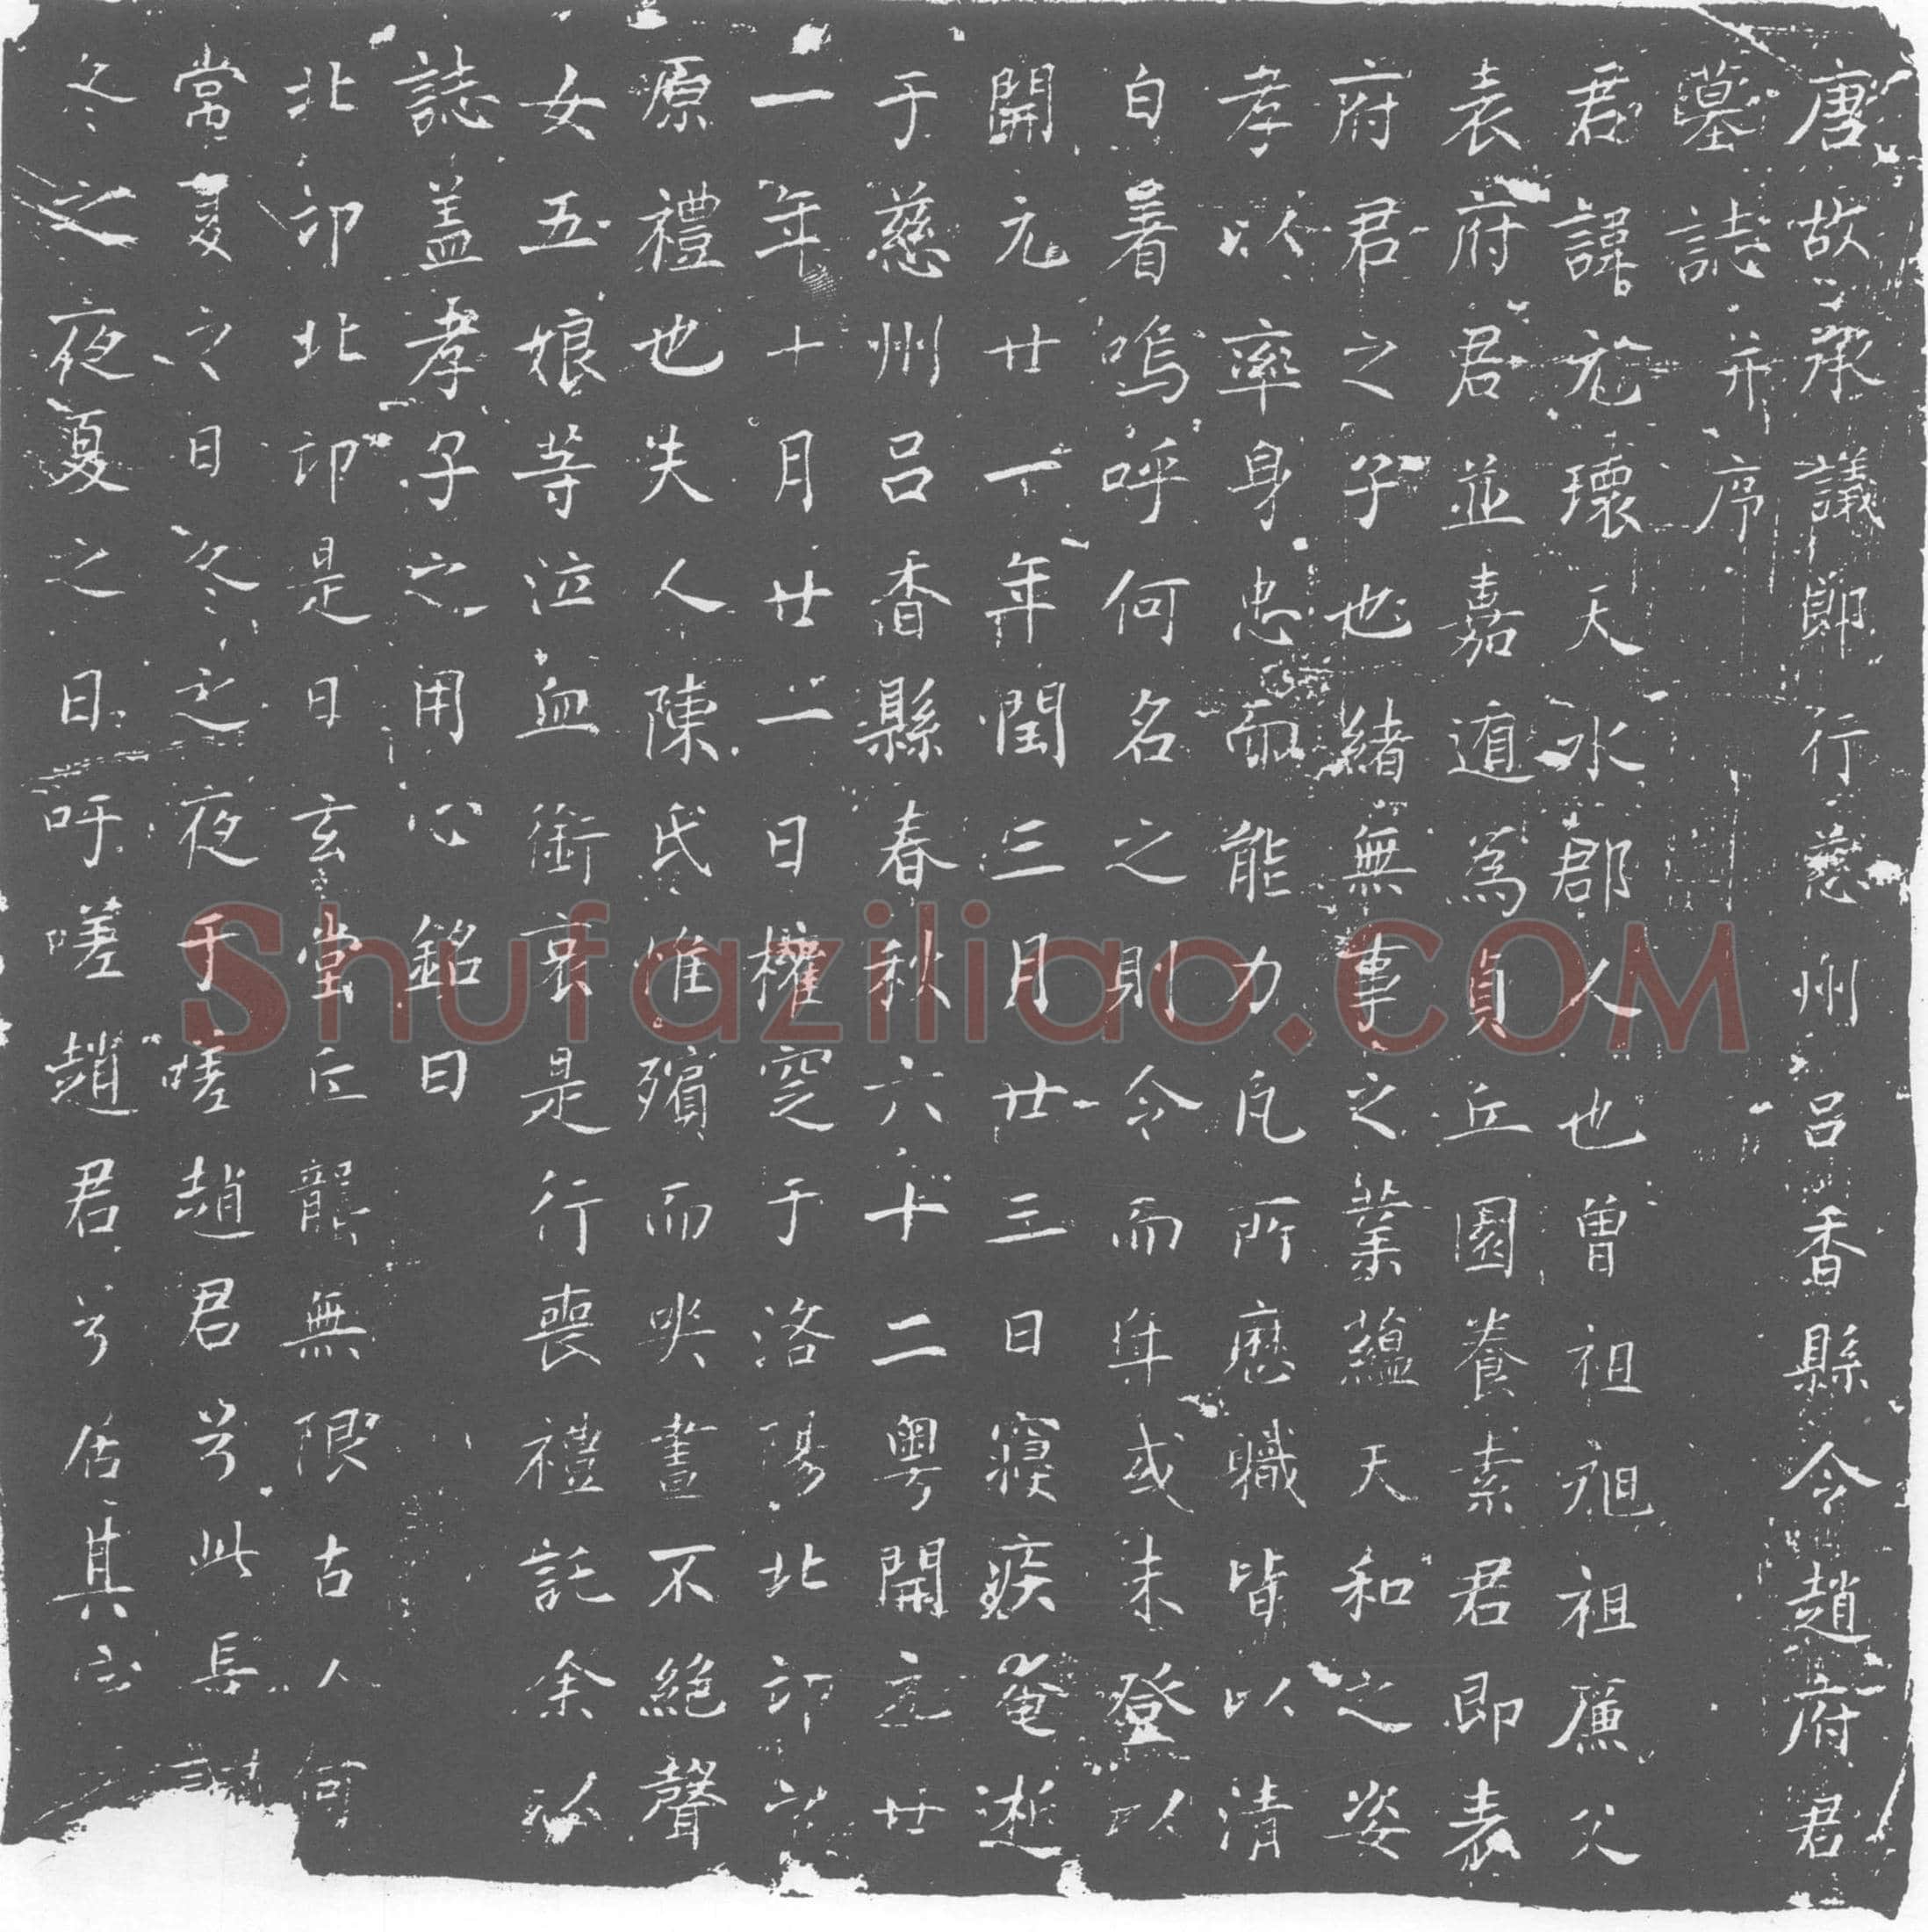 唐故承議郎行慈州呂香縣令趙府君
墓誌并序
君諱元瓌天水郡人也曾祖祖廉父
表府君並嘉遁為貞丘園養素君即表
府君之子也緒無事之業蘊天和之姿
孝以率身忠而能力凡所應職皆以清
白着嗚呼何名之則令而年或未登以
開元廿一年閏三月廿三日寢疾奄逝
于慈州呂香縣春秋六十二粵開元廿
一年十月廿一日權窆于洛陽北邙
源禮也夫人陳氏惟殯而哭晝不絕聲
女五娘等泣血銜哀是行喪禮託余以
誌盖孝子之用心銘曰
北邙北邙是日玄堂丘壟無限古人何
常夏之日冬之夜于嗟趙君兮此長
冬之夜夏之日吁嗟趙君兮居其
Shufaziliao.COM